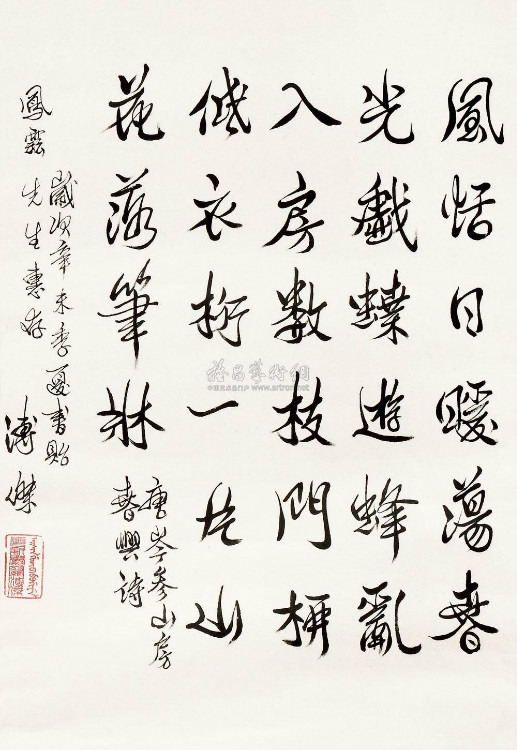 風恬日暖蕩春
光戲蝶遊蜂亂
入房數枝門柳
低衣桁一片山
花落筆牀
唐岑參山房
春興詩
歲次辛未季夏書貽
鳳 先生惠存
溥傑
雅昌藝術網
www.artron.net